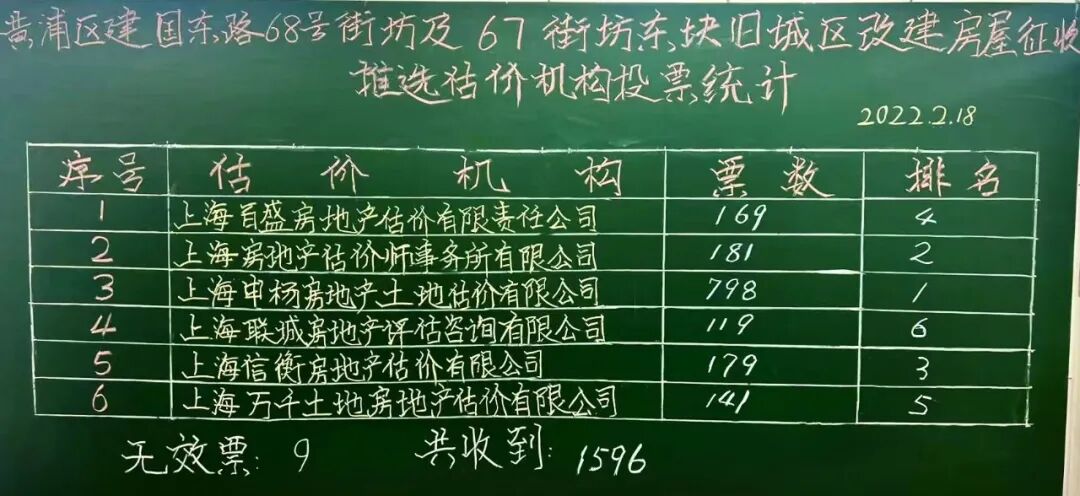 黄浦区建国东路68号街坊及67街坊东块旧城区改建房屋征收
推选估价机构投票统计
2022.2.18
序号 估价机构 票数 排名
1 上海百盛房地产估价有限责任公司 169 4
2 上海房地产估价师事务所有限公司 181 2
3 上海申杨房地产土地估价有限公司 798 1
4 上海联城房地产评估咨询有限公司 119 6
5 上海信衡房地产估价有限公司 179 3
6 上海万千土地房地产估价有限公司 141 5
无效票:9 共收到:1596